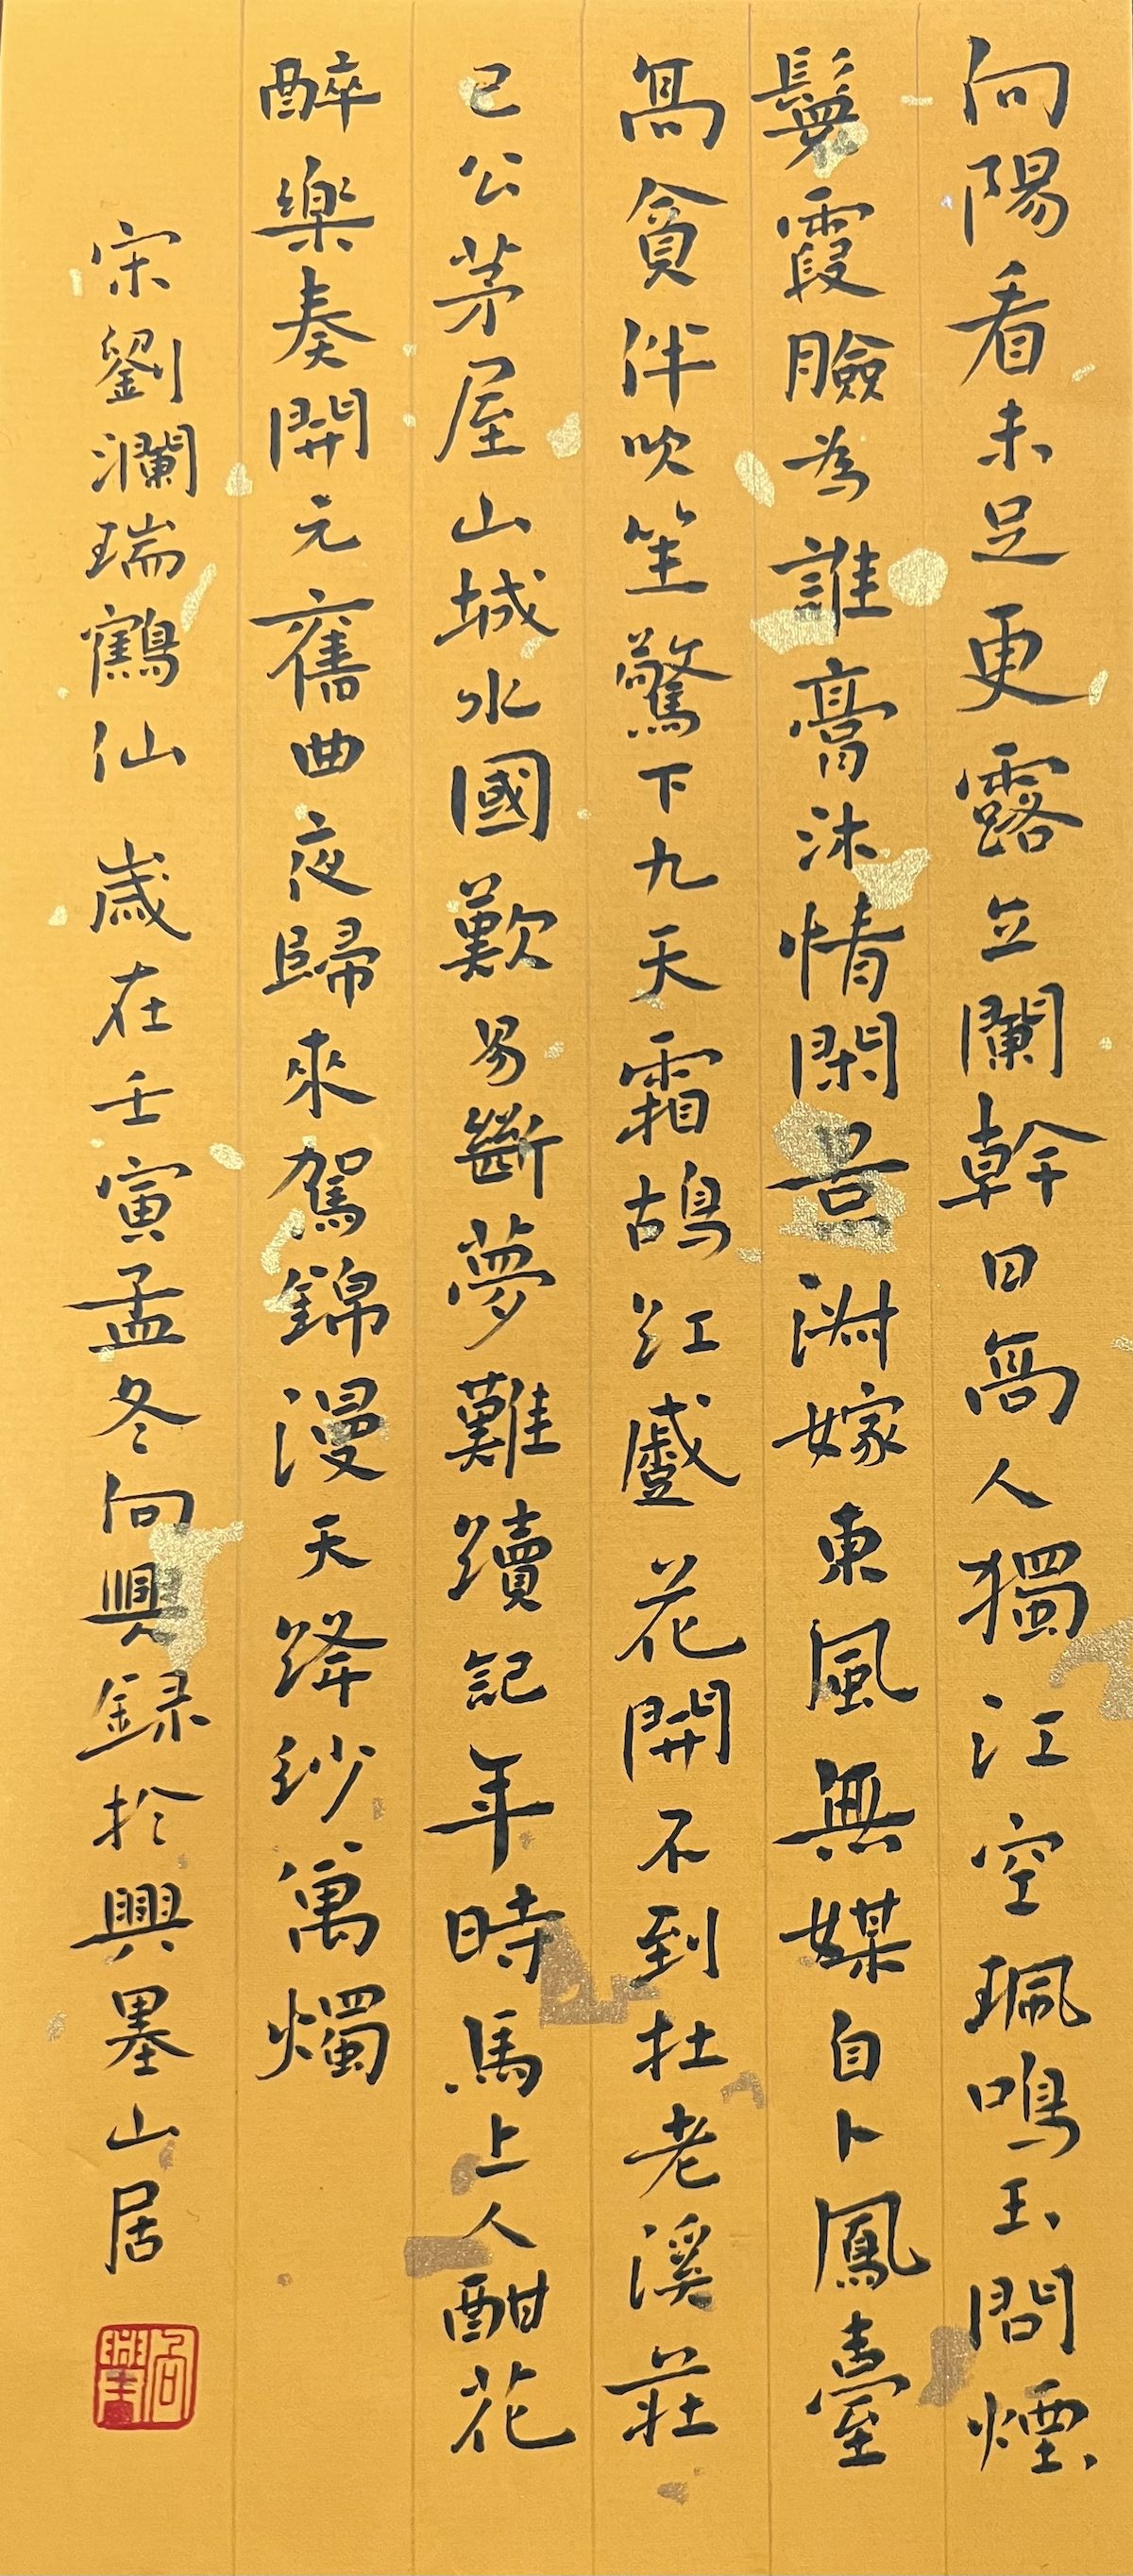 向陽看未足更露立闌幹日高人獨江空珮鳴玉問煙
鬟霞臉為誰膏沐情閑淑嫁東風無媒自卜鳳臺
高貪伴吹笙驚下九天霜鵠紅蹙花開不到杜老溪莊
已公茅屋山城水國歎易斷夢難續記年時馬上人酣花
醉樂奏開元舊曲夜歸來駕錦漫天絳紗萬燭
宋劉瀾瑞鶴仙 歲在壬寅孟冬向興錄於興墨山居